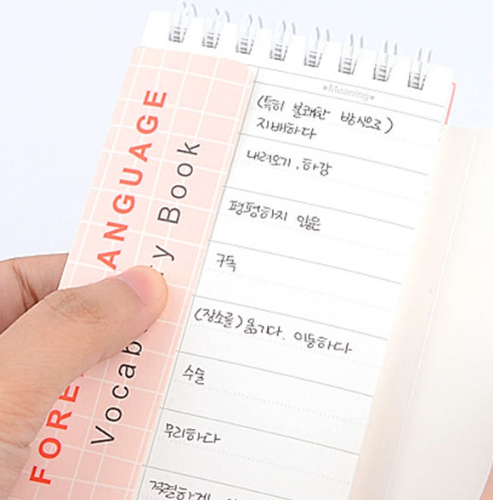 FOREIGN LANGUAGE
Vocabulary Book
*Meaning*
(특히 불쾌한 방식으로)
지배하다
내려오기, 하강
평평하지 않은
구독
(장소를) 옮기다. 이동하다
수들
무리하다